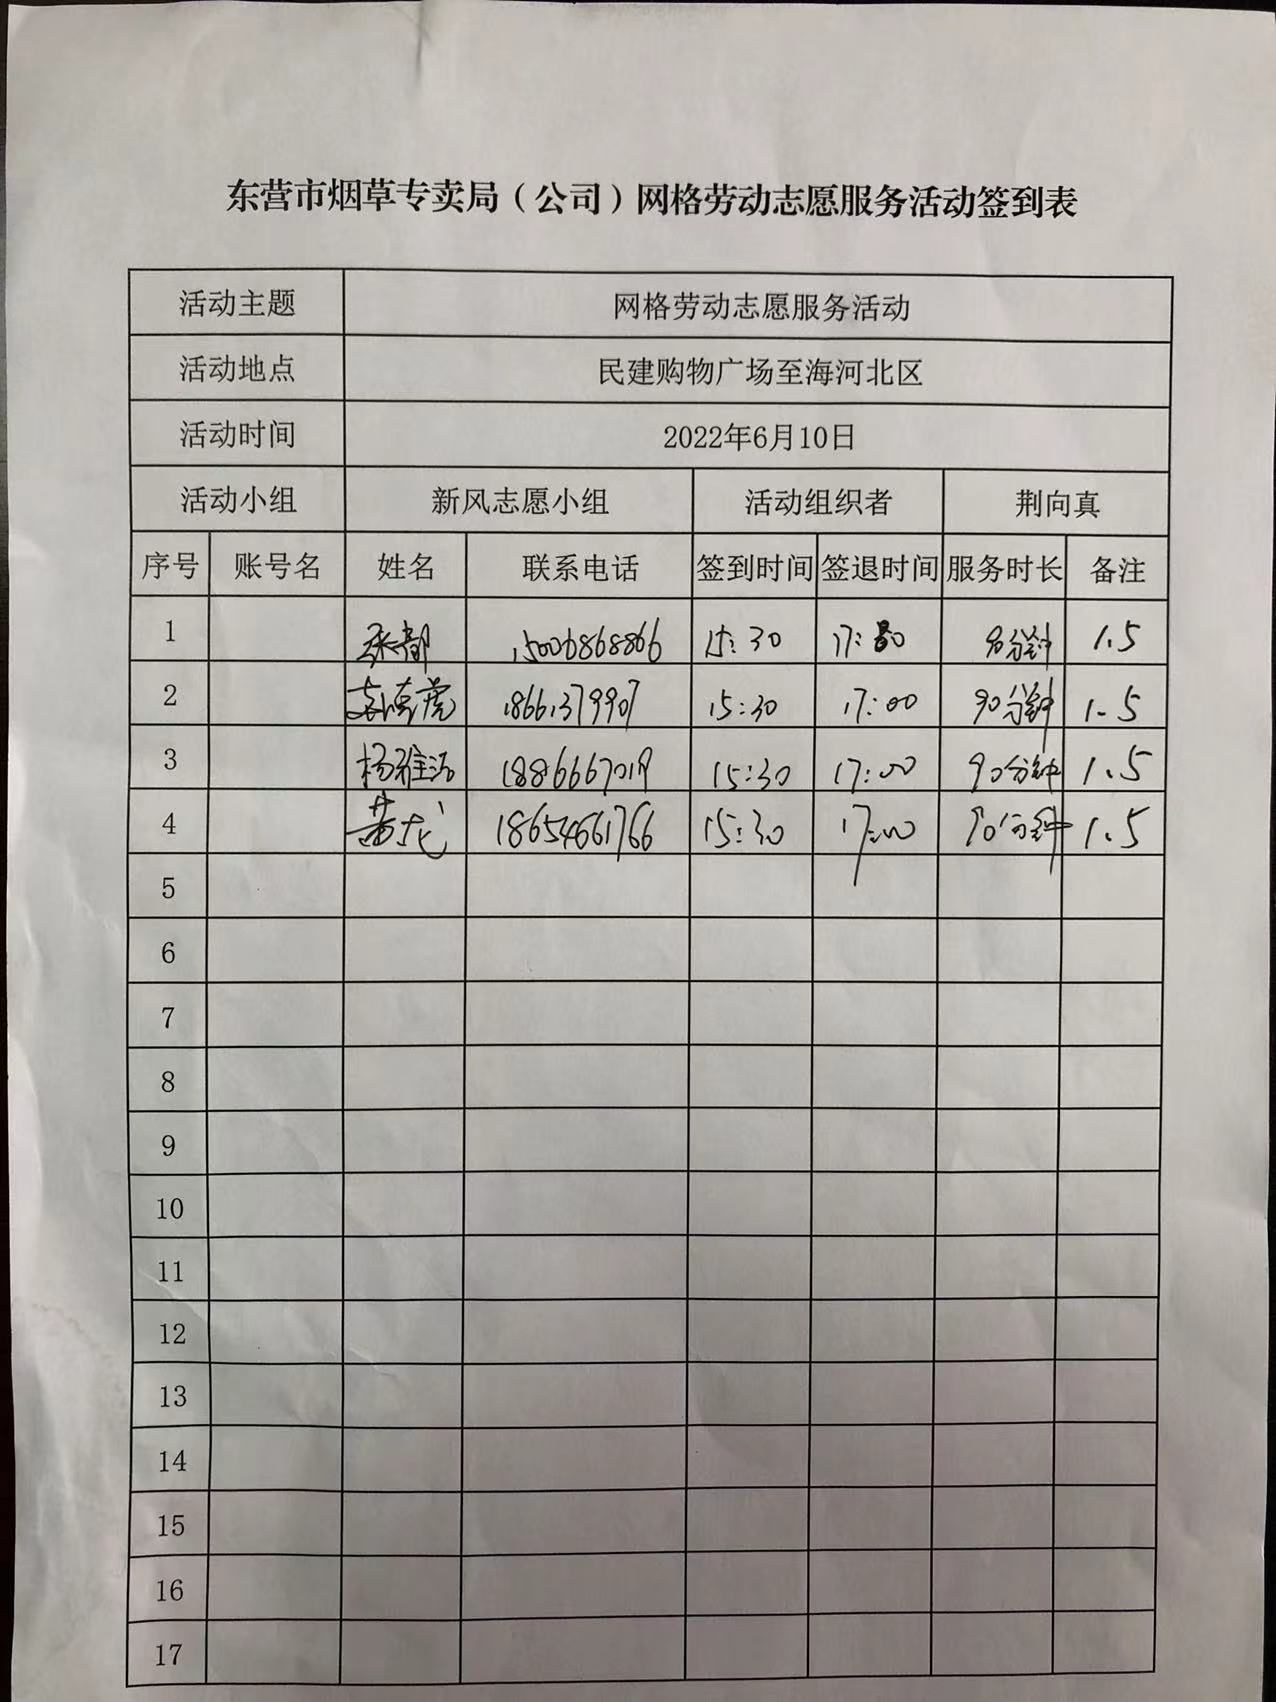 东营市烟草专卖局（公司）网格劳动志愿服务活动签到表
活动主题 网格劳动志愿服务活动
活动地点 民建购物广场至海河北区
活动时间 2022年6月10日
活动小组 新风志愿小组 活动组织者 荆向真
序号 账号名 姓名 联系电话 签到时间 签退时间 服务时长 备注
1 15006868866 15:30 90分钟 1.5
2 18661379907 15:30 17:00 90分钟 1.5
3 杨雅洁 15:30 17:00 90分钟 1.5
4 黄龙 18654661766 15:30 17:00 90分钟 1.5
5
6
7
8
9
10
11
12
13
14
15
16
17